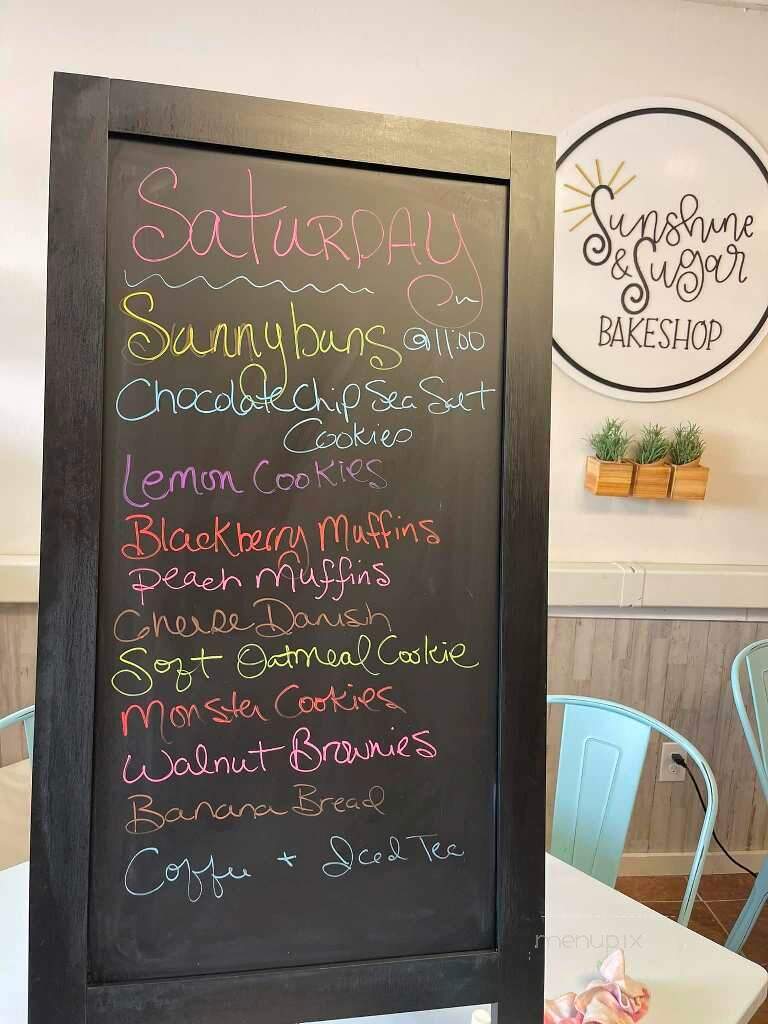 SATURDAY
Sunnybuns @11:00
Chocolate Chip Sea Salt
Cookies
Lemon Cookies
Blackberry Muffins
Peach Muffins
Cheese Danish
Soft Oatmeal Cookie
Monster Cookies
Walnut Brownies
Banana Bread
Coffee + Iced Tea
Sunshine
& Sugar
BAKESHOP
menupix